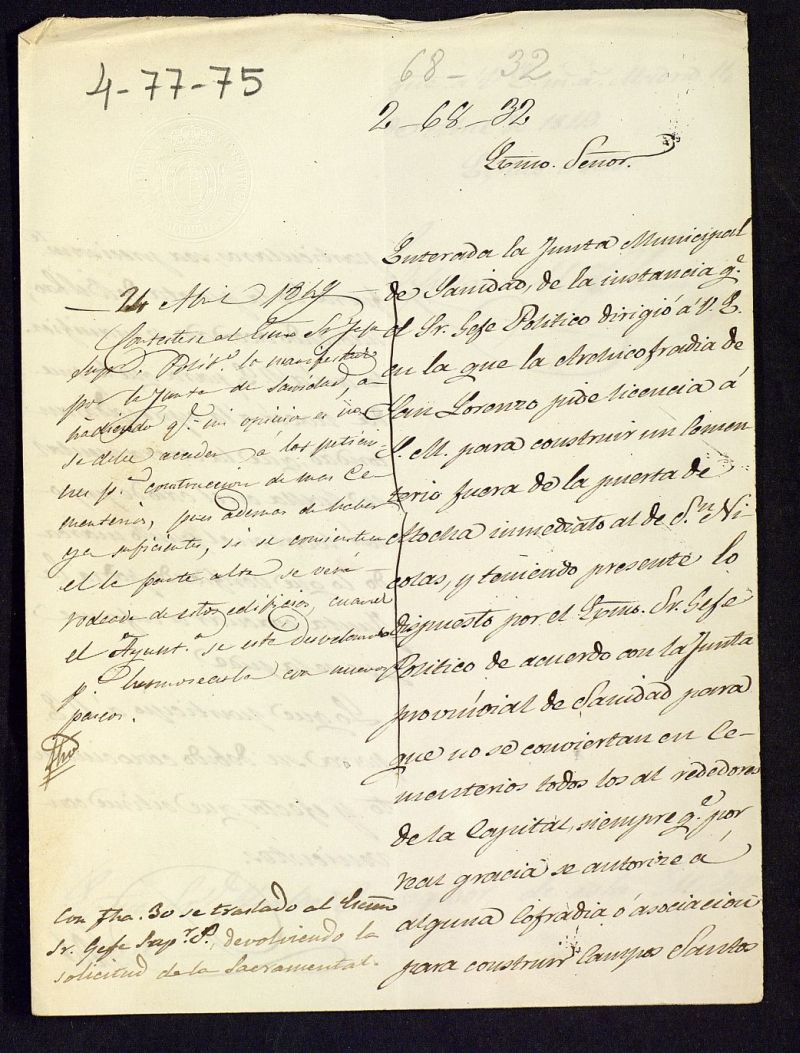 4-77-75
68-32
2-68-32
Exmo. Señor.
Enterada la Junta Municipal
de Sanidad, de la instancia q.e
el Sr. Gefe Politico dirigió á V. E.
en la que la Archicofradia de
San Lorenzo pide licencia á
S. M. para construir un Cemen
terio fuera de la puerta de
Atocha inmediato al de S.n Ni
colas, y teniendo presente lo
dispuesto por el Exmo. Sr. Gefe
Politico de acuerdo con la Junta
provincial de Sanidad para
que no se conviertan en Ce
menterios todos los al rededores
de la Capital, siempre q.e por
real gracia se autorize á
alguna Cofradia ó asociacion
para construir Campos Santos
24 Abril 1849
Contestese al Exmo Sr Jefe
Sup.r Polit.o lo manifestado
por la Junta de Sanidad, a-
ñadiendo q.e mi opinion es no
se debe acceder á las peticio-
nes p.a construccion de mas Ce-
menterios, pues ademas de haber
ya suficientes, si se consienten
en la parte alta se verá
rodeada de estos edificios, cuando
el Ayunt.o se está desvelando
p.a hermosearla con nuevos
paseos.
Con fha. 30 se traslado al Exmo
Sr. Gefe Sup.r P., devolviendo la
solicitud de la Sacramental.